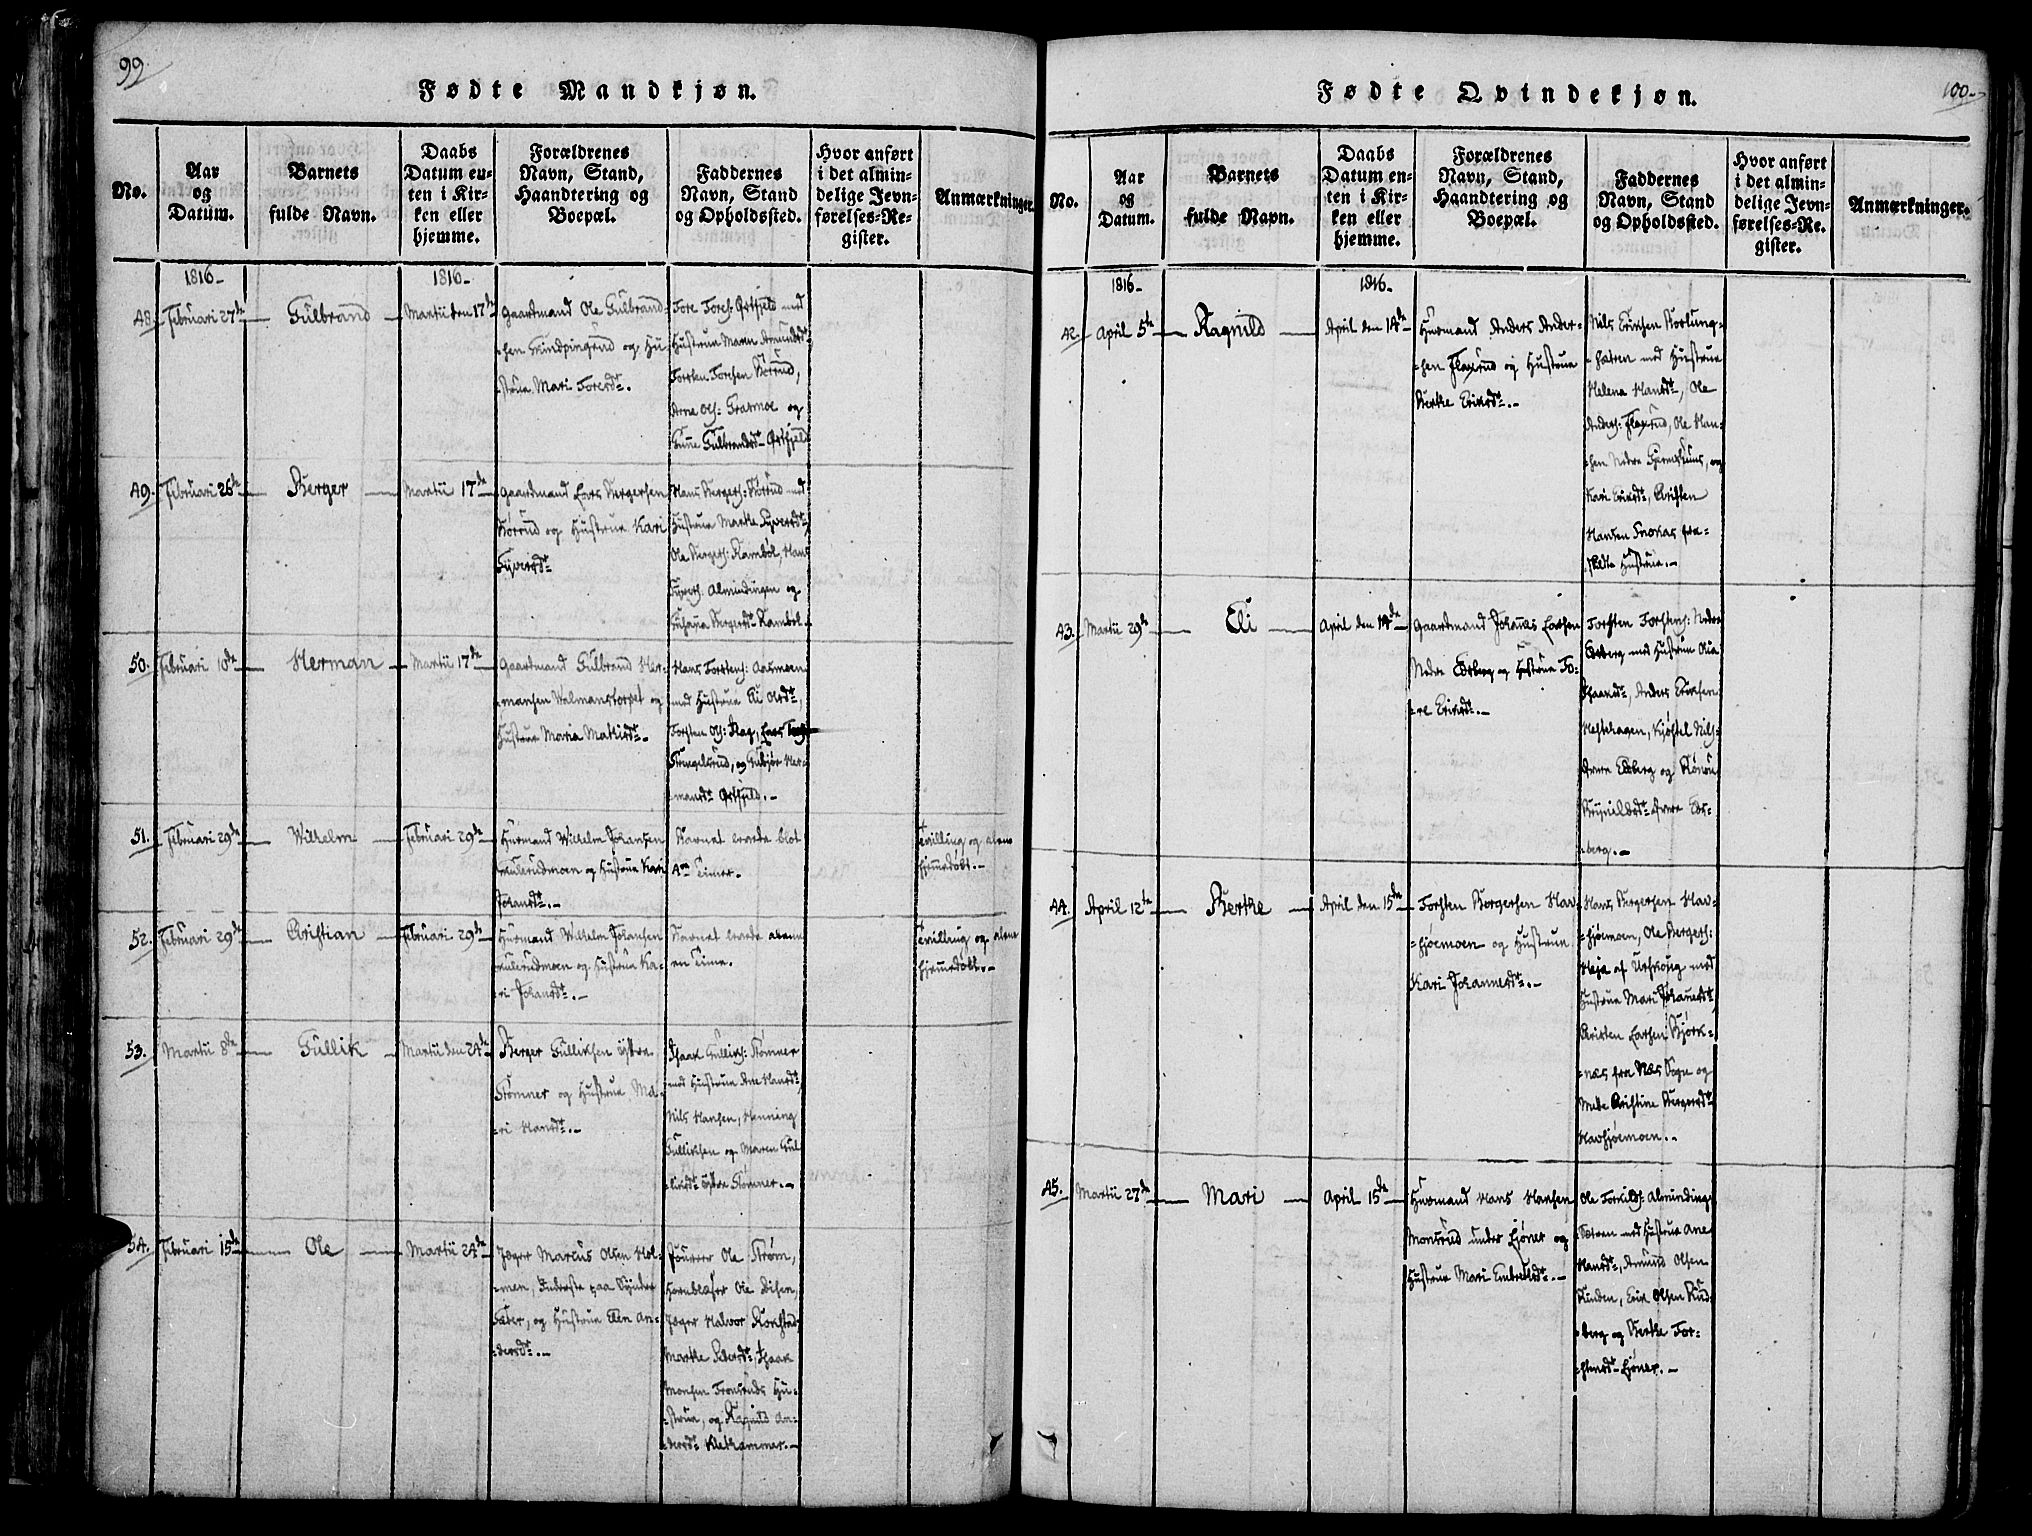 99.
Fødte Mandkjøn.
No.
Aar
og
Datum.
Barnets
fulde Navn.
Daabs
Datum en-
ten i Kir-
ken eller
hjemme.
Forældrenes
Navn, Stand,
Haandtering og
Boepæl.
Faddernes
Navn, Stand
og Opholdssted.
Hvor anført
i det almin-
delige Jevn-
førelses-Re-
gister.
Anmærkninger.
1816.
1816.
48.
Februari 27de
Gulbrand
Martii den 17de
Gaardmand Ole Gulbrand-
-sen og Hu-
-strue Mari Toresdt.
Tore Tores: Ørtfjeld med
Hustrue Maren Amundsdt
Torsten Toresen Børrud,
Arne Ols: Grasmoe og
Gunne Gulbrandsdt Ørtfjeld
49.
Februari 26de
Berger
Martii 17de
Gaardmand Lars Bergersen
Børrud og Hustrue Kari
Syversdt
Hans Bergers: Børrud med
Hustrue Marthe Syversdt,
Ole Bergers: Rambøl, Hans
Syvers: Almindingen og
Bergersdt Rambøl.
50.
Februari 10de
Herman
Martii 17de
Gaardmand Gulbrand Her-
-mansen Walmanstorpet og
Hustrue Maria Mathisdt.
Hans Torstens: Aasmoen
med Hustrue Eli Olsdt,
Torsten Ols: Lars
Strengelsrud, og Gubjør Her-
-mandsdt Ørtfjeld.
51.
Februari 29de
Wilhelm
Februari 29de
Huusmand Wilhelm Johansen
og Hustrue Kari
Johansdt.
Barnet levede blot
4re Timer.
Tvilling og alene
hjemmedøbt.
52.
Februari 29de
Cristian
Februari 29de
Huusmand Wilhelm Johansen
og Hustrue Ka-
ri Johansdt.
Barnet levede alene
en Time.
Tvilling og alene
hjemmedøbt.
53.
Martii 8de
Gullik
Martii den 24de
Berger Gulliksen østre
Stømner og Hustrue Ma-
-ri Hansdt.
Isaak Gulliks: Stømner
med Hustrue Ane Hansdt,
Nils Hansen, Henning
Gulliksen og Maren Gul-
-liksdt østre Stømner.
54.
Februari 15de
Ole
Martii 24de
Jæger Marcus Olsen Hol-
-men, Inderste paa Søndre
Sæter, og Hustrue Elen An-
-dersdt.
Fourerer Ole Strøm,
Hornblæser Ole Disen,
Jæger Halvor Rokstad
Marthe Pedersdt, Isaak
Monsen Hu-
-strue, og Ragnild An-
-dersdt Klekammer.
100.
Fødte Qvindekjøn.
No.
Aar
og
Datum.
Barnets
fulde Navn.
Daabs
Datum en-
ten i Kir-
ken eller
hjemme.
Forældrenes
Navn, Stand,
Haandtering og
Boepæl.
Faddernes
Navn, Stand
og Opholdssted.
Hvor anført
i det almin-
delige Jevn-
førelses-Re-
gister.
Anmærkninger.
1816.
1816.
42.
April 5te
Ragnild
April den 14de
Huusmand Anders Ander-
-sen Flaxrud og Hustrue
Berthe Eriksdt.
Nils Eriksen
med Hustrue
Helena Hansdt, Ole
Anders: Flaxrud, Ole Han-
-sen Nedre og
Kari Eriksdt, Cristen
Hansen fra-
-skilte Hustrue.
43.
Martii 29de
Eli
April den 14de
Gaardmand Johannes Larsen
Nedre Edsberg og Hustrue To-
-re Eriksdt.
Torsten Torstens: Nedre
Edsberg med Hustrue Olia
Anders Eriksen
Hestehagen, Kjøstel Nils:
øvre Edsberg og
øvre Eds-
-berg.
44.
April 12te
Berthe
April den 15de
Torsten Bergersen Hav-
-sjøemoen og Hustrue
Kari Johannesdt.
Hans Bergersen Hav-
-sjøemoen, Ole Bergers:
Heja af Urskoug med
Hustrue Mari Johanesdt,
Cristen Larsen Bjørk-
-næs fra Næs Sogn og
Mette Cristine Bergersdt
Havsjøemoen.
45.
Martii 27de
Mari
April 15de
Huusmand Hans Hansen
Monsrud under Ljøner og
Hustrue Mari Embretsdt.
Ole Torkilds: Alminding-
Sætren med Hustrue Ane
Hansdt, Amund Olsen
Runden, Erik Olsen Rud-
-berg og Berthe Tor-
-stensdt Ljøner.